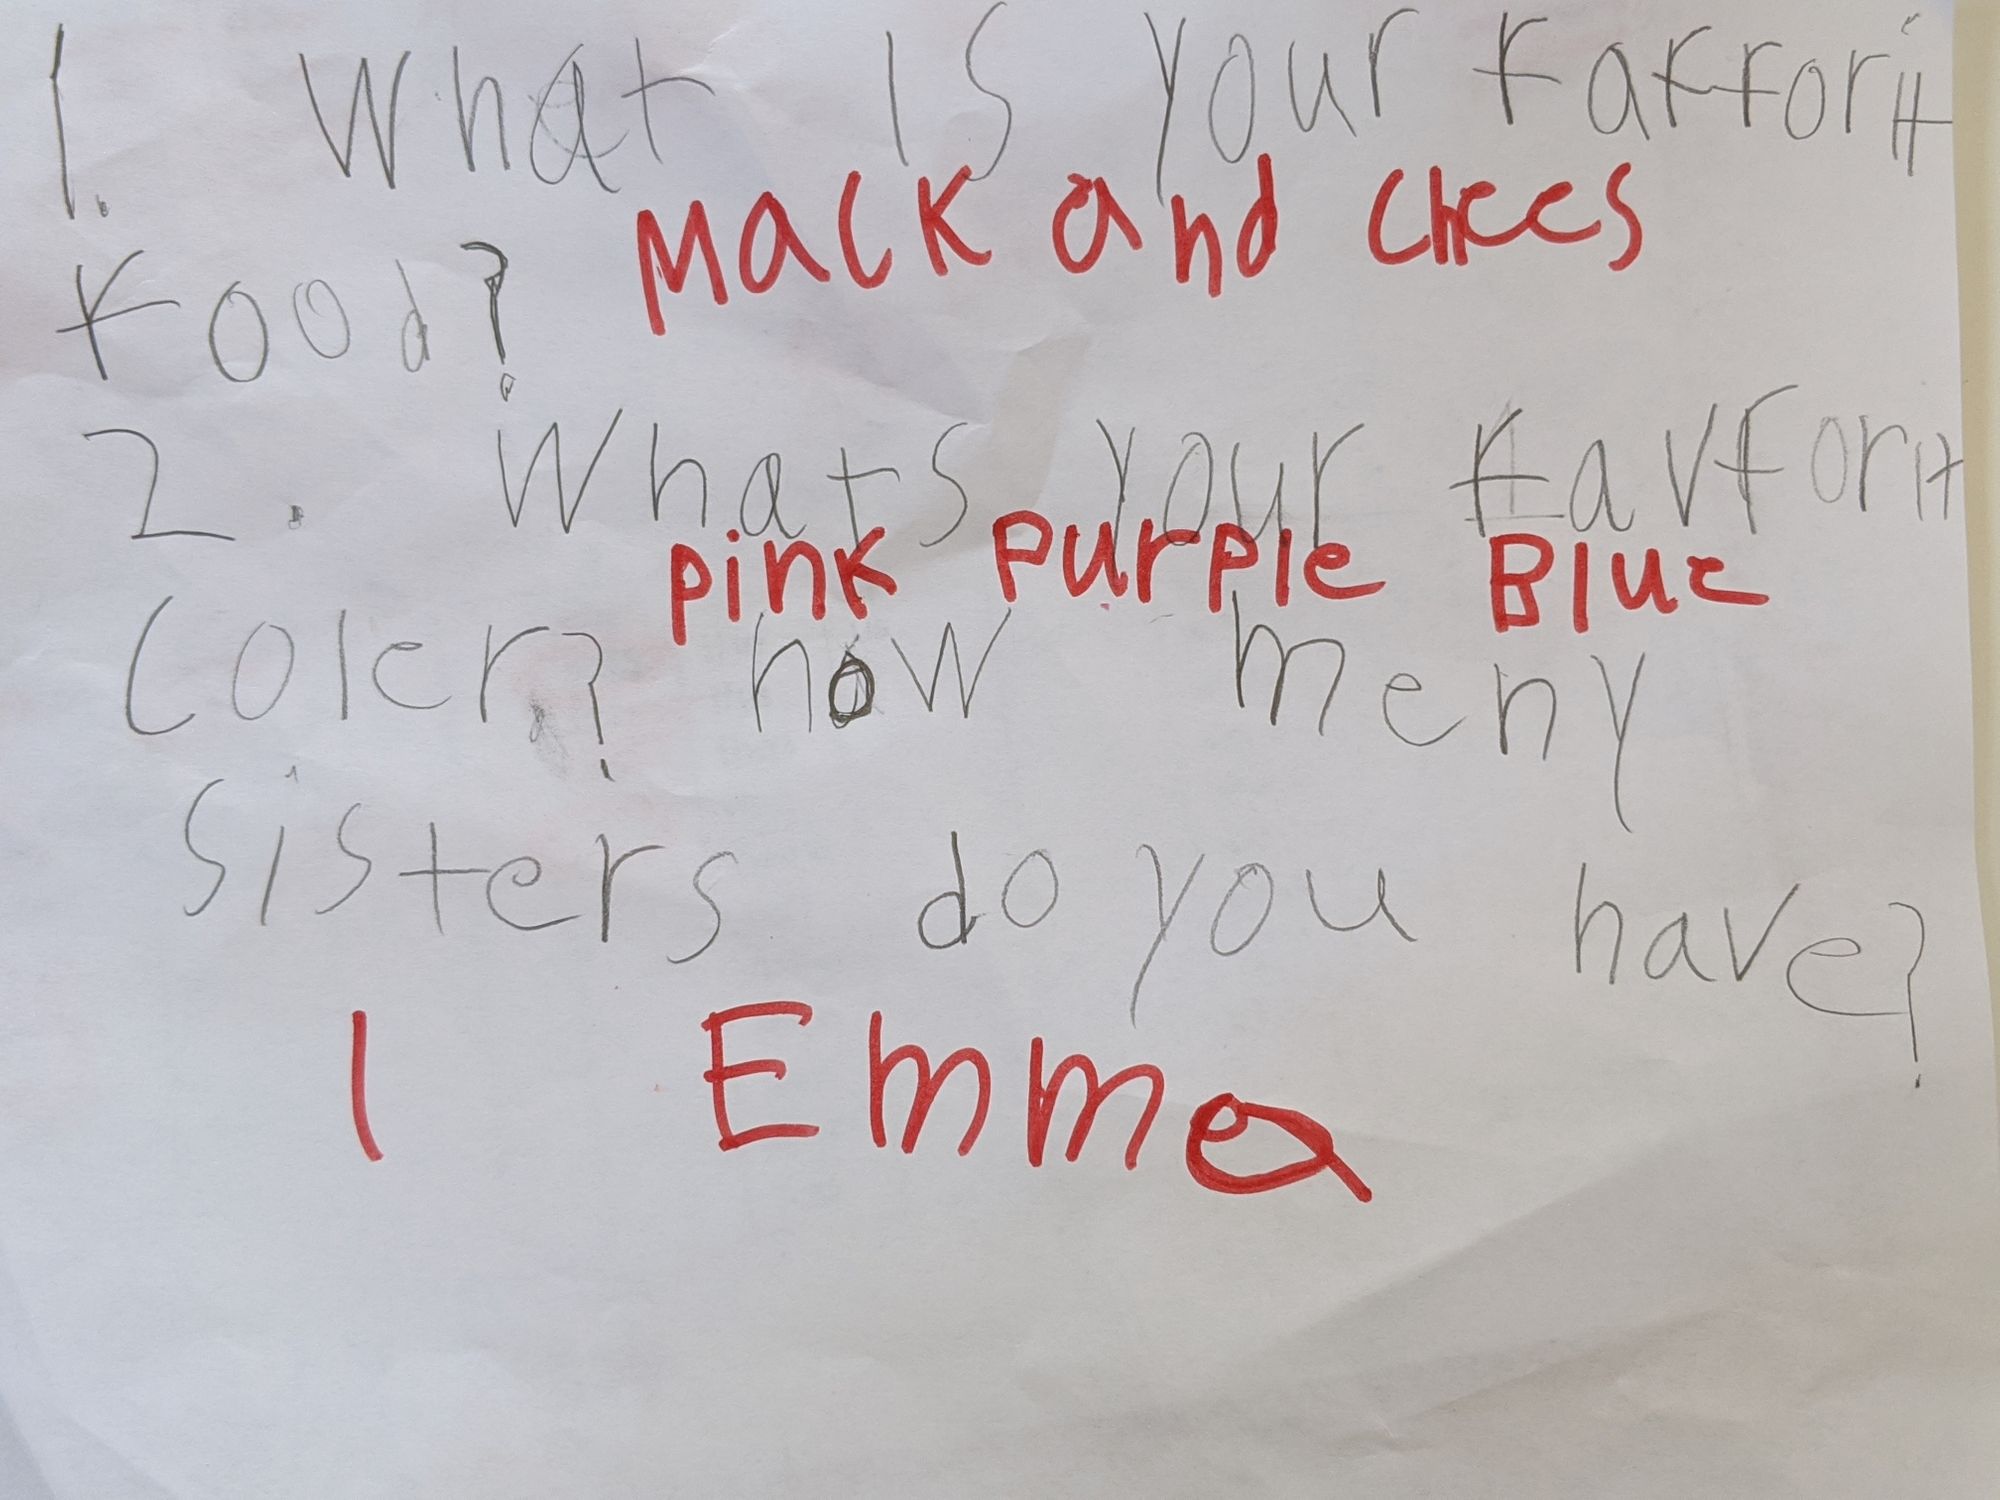 1. What is your fafforit
Mack and chees
food?
2. Whats your favforit
pink purple Blue
coler? how meny
sisters do you have?
1 Emma